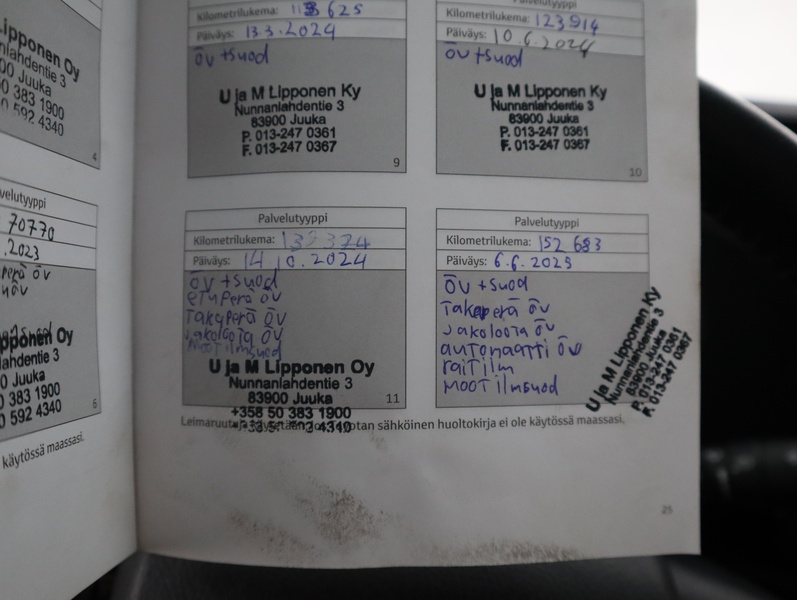 Lipponen Oy
Nunnanlahdentie 3
83900 Juuka
+358 50 383 1900
592 4340
4
Palvelutyyppi
70770
.2023
6
käytössä maassasi.
Kilometrilukema: 113 625
Päiväys: 13.3.2024
ÖV + suod
U ja M Lipponen Ky
Nunnanlahdentie 3
83900 Juuka
P. 013-247 0361
F. 013-247 0367
9
Palvelutyyppi
Kilometrilukema: 123914
Päiväys: 10.6.2024
ÖV + suod
U ja M Lipponen Ky
Nunnanlahdentie 3
83900 Juuka
P. 013-247 0361
F. 013-247 0367
10
Palvelutyyppi
Kilometrilukema:
Päiväys: 14.10.2024
ÖV + suod
etuperä ÖV
Takaperä ÖV
Jakoloota ÖV
moot ilmsuod
U ja M Lipponen Oy
Nunnanlahdentie 3
83900 Juuka
+358 50 383 1900
11
Palvelutyyppi
Kilometrilukema: 152 683
Päiväys: 6.6.2025
ÖV + suod
Takaperä ÖV
Jakoloota ÖV
automaatti ÖV
raitilm
moot ilmsuod
U ja M Lipponen Ky
Nunnanlahdentie 3
83900 Juuka
P. 013-247 0361
F. 013-247 0367
sähköinen huoltokirja ei ole käytössä maassasi.
25